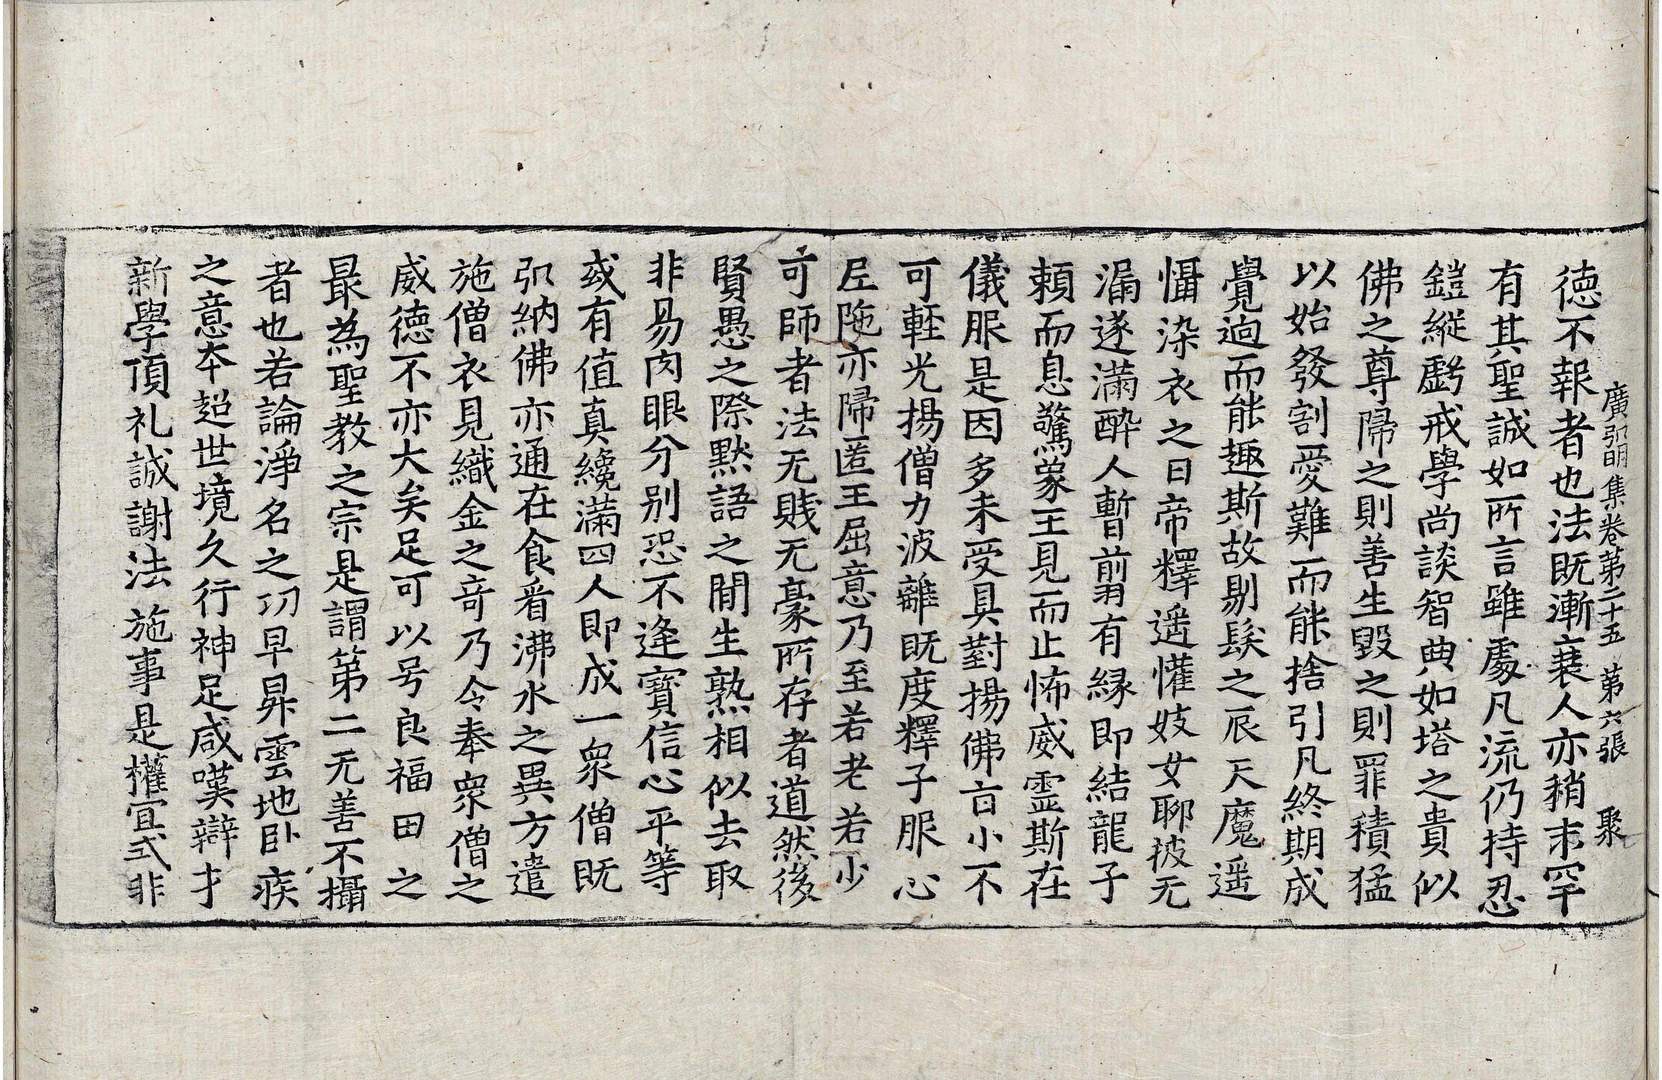 廣弘明集卷第二十五 第六張 聚
德不報者也法既漸衰人亦稍末罕
有其聖誠如所言雖處凡流仍持忍
鎧縱虧戒學尚談智典如塔之貴似
佛之尊歸之則善生毀之則罪積猛
以始發割愛難而能捨引凡終期成
覺逈而能趣斯故剔髮之辰天魔遥
懾染衣之日帝釋遥懽妓女聊披无
漏遂滿醉人暫翦有緣即結龍子
頼而息驚象王見而止怖威霊斯在
儀服是因多未受具對揚佛旨小不
可輕光揚僧力波離既度釋子服心
尼陁亦歸匿王屈意乃至若老若少
可師者法无賎无豪所存者道然後
賢愚之際默語之間生熟相似去取
非易肉眼分别恐不逢寶信心平等
或有值真纔滿四人即成一衆僧既
弘納佛亦通在食看沸水之異方遣
施僧衣見織金之竒乃令奉衆僧之
威德不亦大矣足可以号良福田之
最為聖教之宗是謂第二无善不攝
者也若論淨名之功早昇雲地卧疾
之意本超世境久行神足咸嘆辯才
新學頂礼誠謝法施事是權宜式非